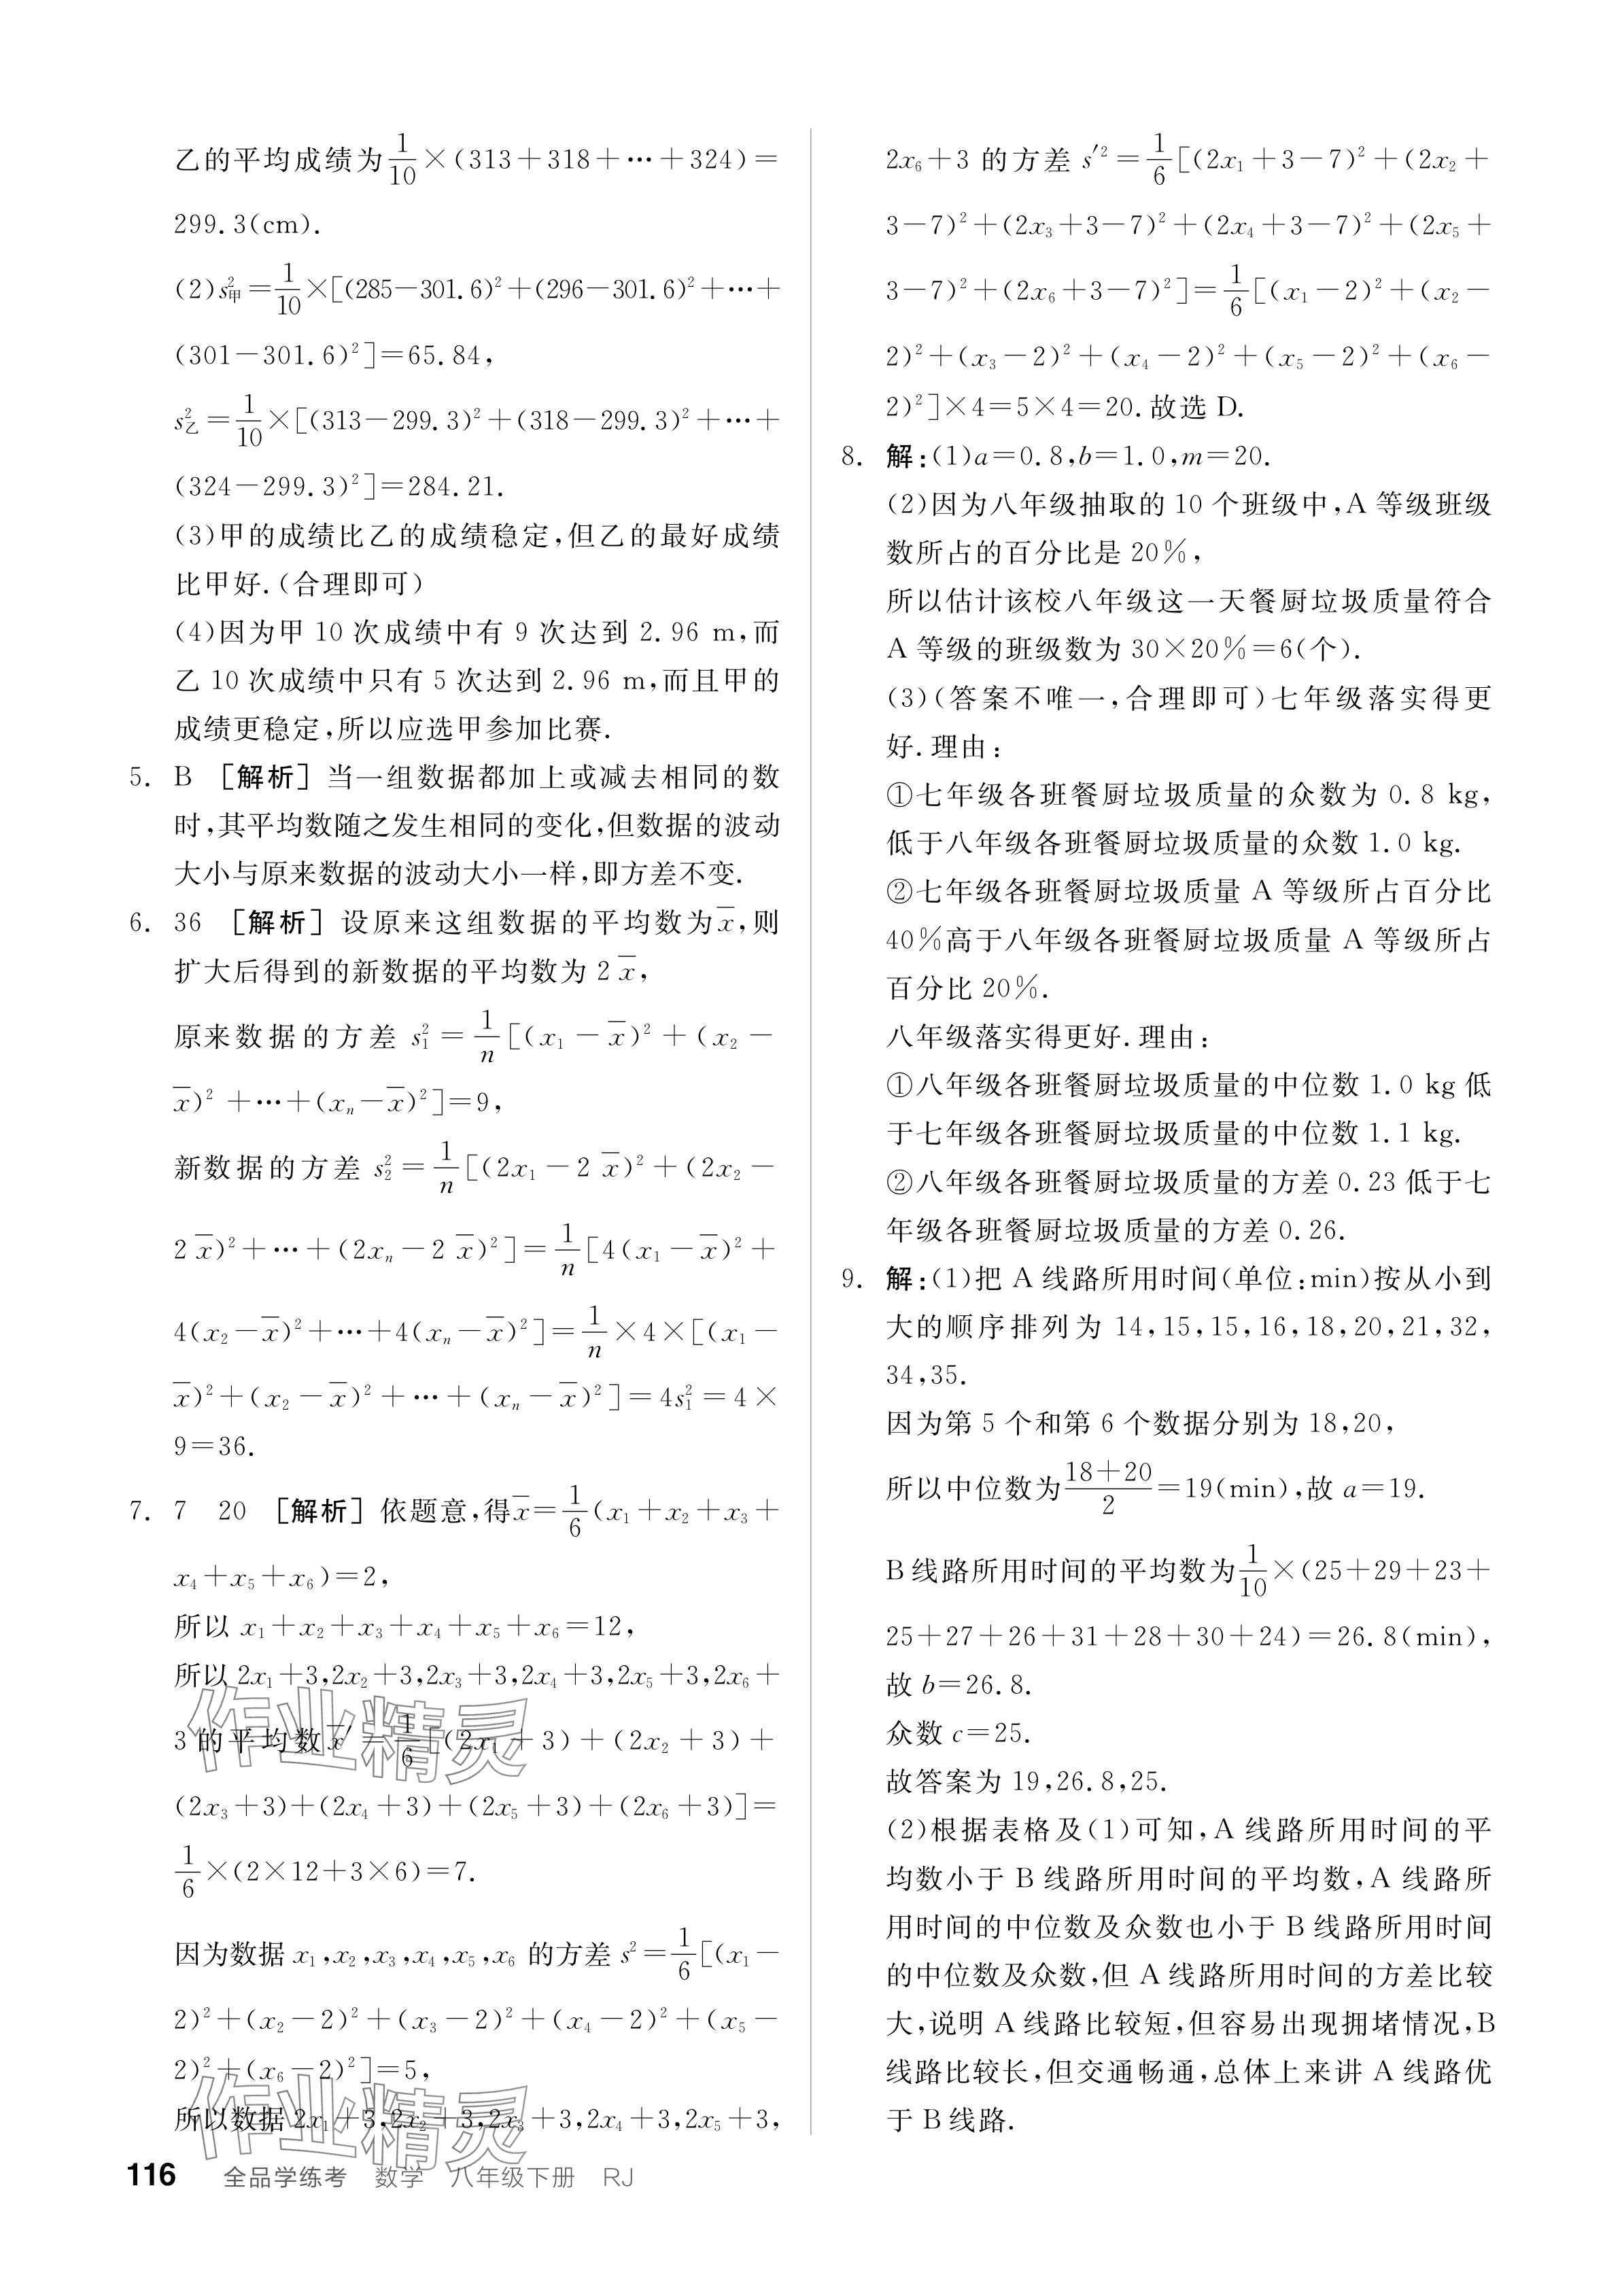 乙的平均成绩为1/10×(313+318+…+324)=
299.3(cm).
(2)s²甲=1/10×[(285-301.6)²+(296-301.6)²+…+
(301-301.6)²]=65.84,
s²乙=1/10×[(313-299.3)²+(318-299.3)²+…+
(324-299.3)²]=284.21.
(3)甲的成绩比乙的成绩稳定,但乙的最好成绩
比甲好.(合理即可)
(4)因为甲 10 次成绩中有 9 次达到 2.96 m,而
乙 10 次成绩中只有 5 次达到 2.96 m,而且甲的
成绩更稳定,所以应选甲参加比赛.
5. B [解析] 当一组数据都加上或减去相同的数
时,其平均数随之发生相同的变化,但数据的波动
大小与原来数据的波动大小一样,即方差不变.
6. 36 [解析] 设原来这组数据的平均数为x̄,则
扩大后得到的新数据的平均数为 2x̄,
原来数据的方差 s₁²=1/n[(x₁-x̄)²+(x₂-
x̄)²+…+(xₙ-x̄)²]=9,
新数据的方差 s₂²=1/n[(2x₁-2x̄)²+(2x₂-
2x̄)²+…+(2xₙ-2x̄)²]=1/n[4(x₁-x̄)²+
4(x₂-x̄)²+…+4(xₙ-x̄)²]=1/n×4×[(x₁-
x̄)²+(x₂-x̄)²+…+(xₙ-x̄)²]=4s₁²=4×
9=36.
7. 7 20 [解析] 依题意,得x̄=1/6(x₁+x₂+x₃+
x₄+x₅+x₆)=2,
所以 x₁+x₂+x₃+x₄+x₅+x₆=12,
所以 2x₁+3,2x₂+3,2x₃+3,2x₄+3,2x₅+3,2x₆+
3 的平均数x̄′=1/6[(2x₁+3)+(2x₂+3)+
(2x₃+3)+(2x₄+3)+(2x₅+3)+(2x₆+3)]=
1/6×(2×12+3×6)=7.
因为数据 x₁,x₂,x₃,x₄,x₅,x₆ 的方差 s²=1/6[(x₁-
2)²+(x₂-2)²+(x₃-2)²+(x₄-2)²+(x₅-
2)²+(x₆-2)²]=5,
所以数据 2x₁+3,2x₂+3,2x₃+3,2x₄+3,2x₅+3,
2x₆+3 的方差 s′²=1/6[(2x₁+3-7)²+(2x₂+
3-7)²+(2x₃+3-7)²+(2x₄+3-7)²+(2x₅+
3-7)²+(2x₆+3-7)²]=1/6[(x₁-2)²+(x₂-
2)²+(x₃-2)²+(x₄-2)²+(x₅-2)²+(x₆-
2)²]×4=5×4=20.故选 D.
8. 解:(1)a=0.8,b=1.0,m=20.
(2)因为八年级抽取的 10 个班级中,A 等级班级
数所占的百分比是 20%,
所以估计该校八年级这一天餐厨垃圾质量符合
A 等级的班级数为 30×20%=6(个).
(3)(答案不唯一,合理即可)七年级落实得更
好.理由:
①七年级各班餐厨垃圾质量的众数为 0.8 kg,
低于八年级各班餐厨垃圾质量的众数 1.0 kg.
②七年级各班餐厨垃圾质量 A 等级所占百分比
40%高于八年级各班餐厨垃圾质量 A 等级所占
百分比 20%.
八年级落实得更好.理由:
①八年级各班餐厨垃圾质量的中位数 1.0 kg 低
于七年级各班餐厨垃圾质量的中位数 1.1 kg.
②八年级各班餐厨垃圾质量的方差 0.23 低于七
年级各班餐厨垃圾质量的方差 0.26.
9. 解:(1)把 A 线路所用时间(单位:min)按从小到
大的顺序排列为 14,15,15,16,18,20,21,32,
34,35.
因为第 5 个和第 6 个数据分别为 18,20,
所以中位数为(18+20)/2=19(min),故 a=19.
B 线路所用时间的平均数为1/10×(25+29+23+
25+27+26+31+28+30+24)=26.8(min),
故 b=26.8.
众数 c=25.
故答案为 19,26.8,25.
(2)根据表格及(1)可知,A 线路所用时间的平
均数小于 B 线路所用时间的平均数,A 线路所
用时间的中位数及众数也小于 B 线路所用时间
的中位数及众数,但 A 线路所用时间的方差比较
大,说明 A 线路比较短,但容易出现拥堵情况,B
线路比较长,但交通畅通,总体上来讲 A 线路优
于 B 线路.
作业精灵
作业精灵
116 全品学练考 数学 八年级下册 RJ